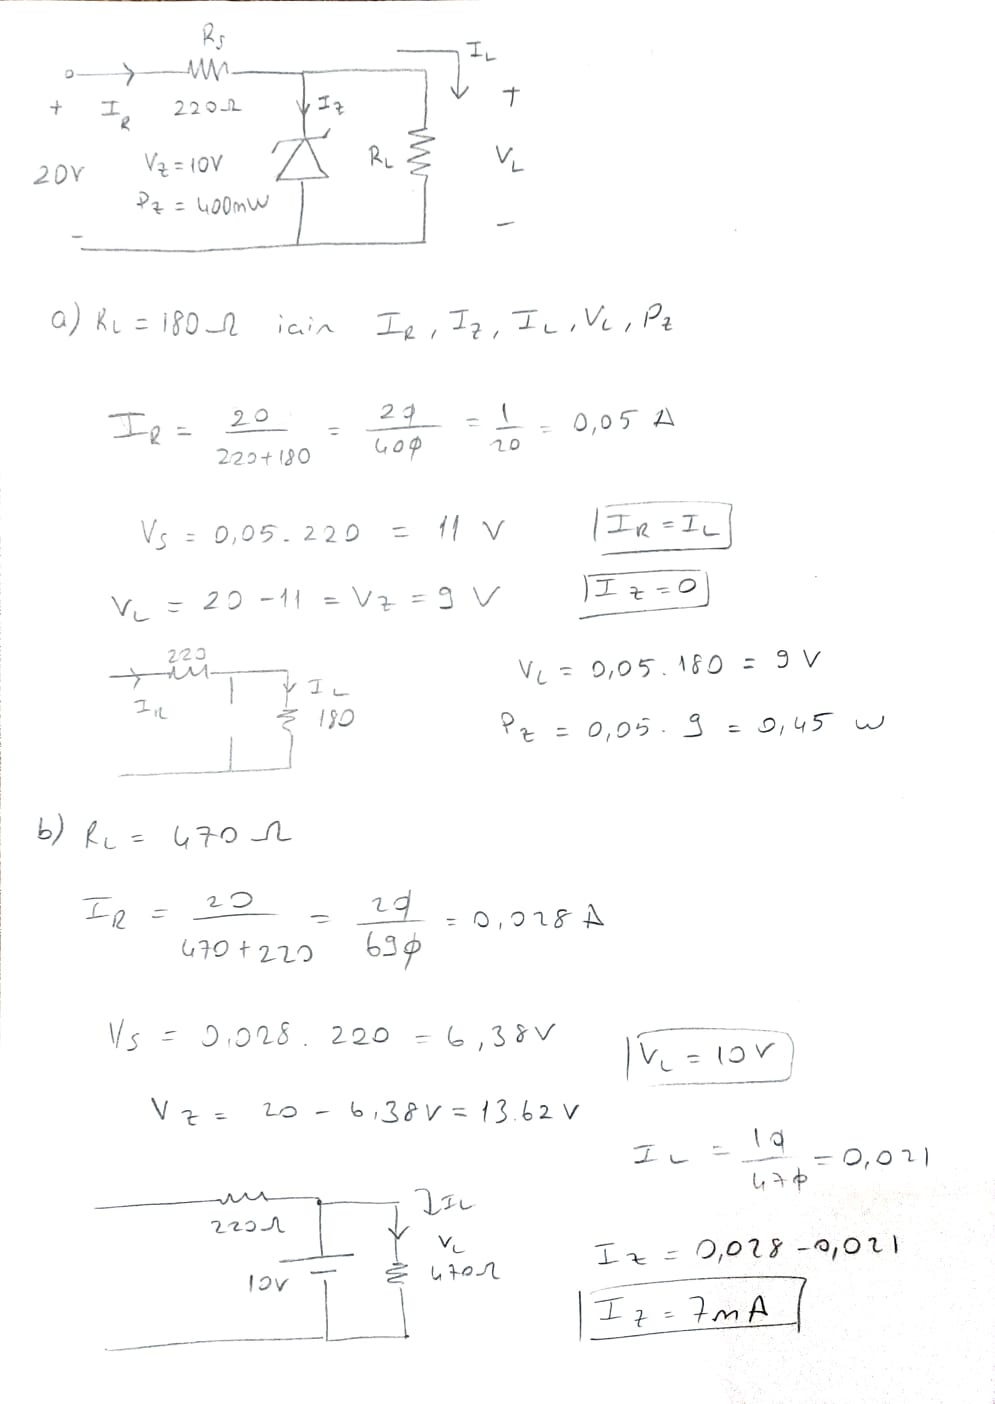 Rs
IL
+ IR 220Ω IZ +
20V VZ = 10V RL VL
PZ = 400mW
- -
a) RL = 180Ω için IR, IZ, IL, VL, PZ
IR = 20 / 220+180 = 20 / 400 = 1 / 20 = 0,05 A
Vs = 0,05 . 220 = 11 V IR = IL
VL = 20 - 11 = VZ = 9 V IZ = 0
220
IR IL 180
VL = 0,05 . 180 = 9 V
PZ = 0,05 . 9 = 0,45 W
b) RL = 470 Ω
IR = 20 / 470+220 = 20 / 690 = 0,028 A
Vs = 0,028 . 220 = 6,38V VL = 10V
VZ = 20 - 6,38V = 13.62 V
IL = 10 / 470 = 0,021
220Ω IL
10V VL 470Ω
IZ = 0,028 - 0,021
IZ = 7mA